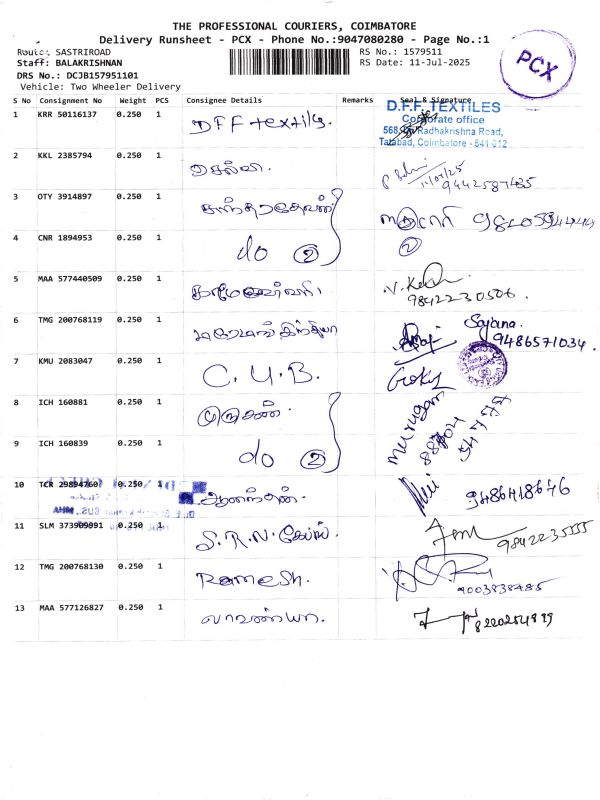 THE PROFESSIONAL COURIERS, COIMBATORE
Delivery Runsheet - PCX - Phone No.:9047080280 - Page No.:1
Route: SASTRIROAD
RS No.: 1579511
Staff: BALAKRISHNAN
RS Date: 11-Jul-2025
DRS No.: DCJB157951101
Vehicle: Two Wheeler Delivery
PCX
S No Consignment No Weight PCS Consignee Details Remarks Seal & Signature
1 KRR 50116137 0.250 1 DFF textile.
D.F.F. TEXTILES
Corporate office
568, Radhakrishna Road,
Tatabad, Coimbatore - 641 012
2 KKL 2385794 0.250 1 செல்வி.
11/07/25
3 OTY 3914897 0.250 1 சாந்ததேவன்
4 CNR 1894953 0.250 1 do ②
②
5 MAA 577440509 0.250 1 காமேஸ்வரி. V.
9842230506.
6 TMG 200768119 0.250 1
Sajana.
9486571034.
7 KMU 2083047 0.250 1 C.U.B. Gokul
8 ICH 160881 0.250 1 முருகன். murugan
9 ICH 160839 0.250 1 do ②
88704
54777
10 TCR 29894760 0.250 1 ஆனந்தன். 9486418676
11 SLM 373909091 0.250 1 S.R.N. கேஸ். 9842235555
12 TMG 200768130 0.250 1 Ramesh. 9003838485
13 MAA 577126827 0.250 1 லாவண்யா. 8220254899